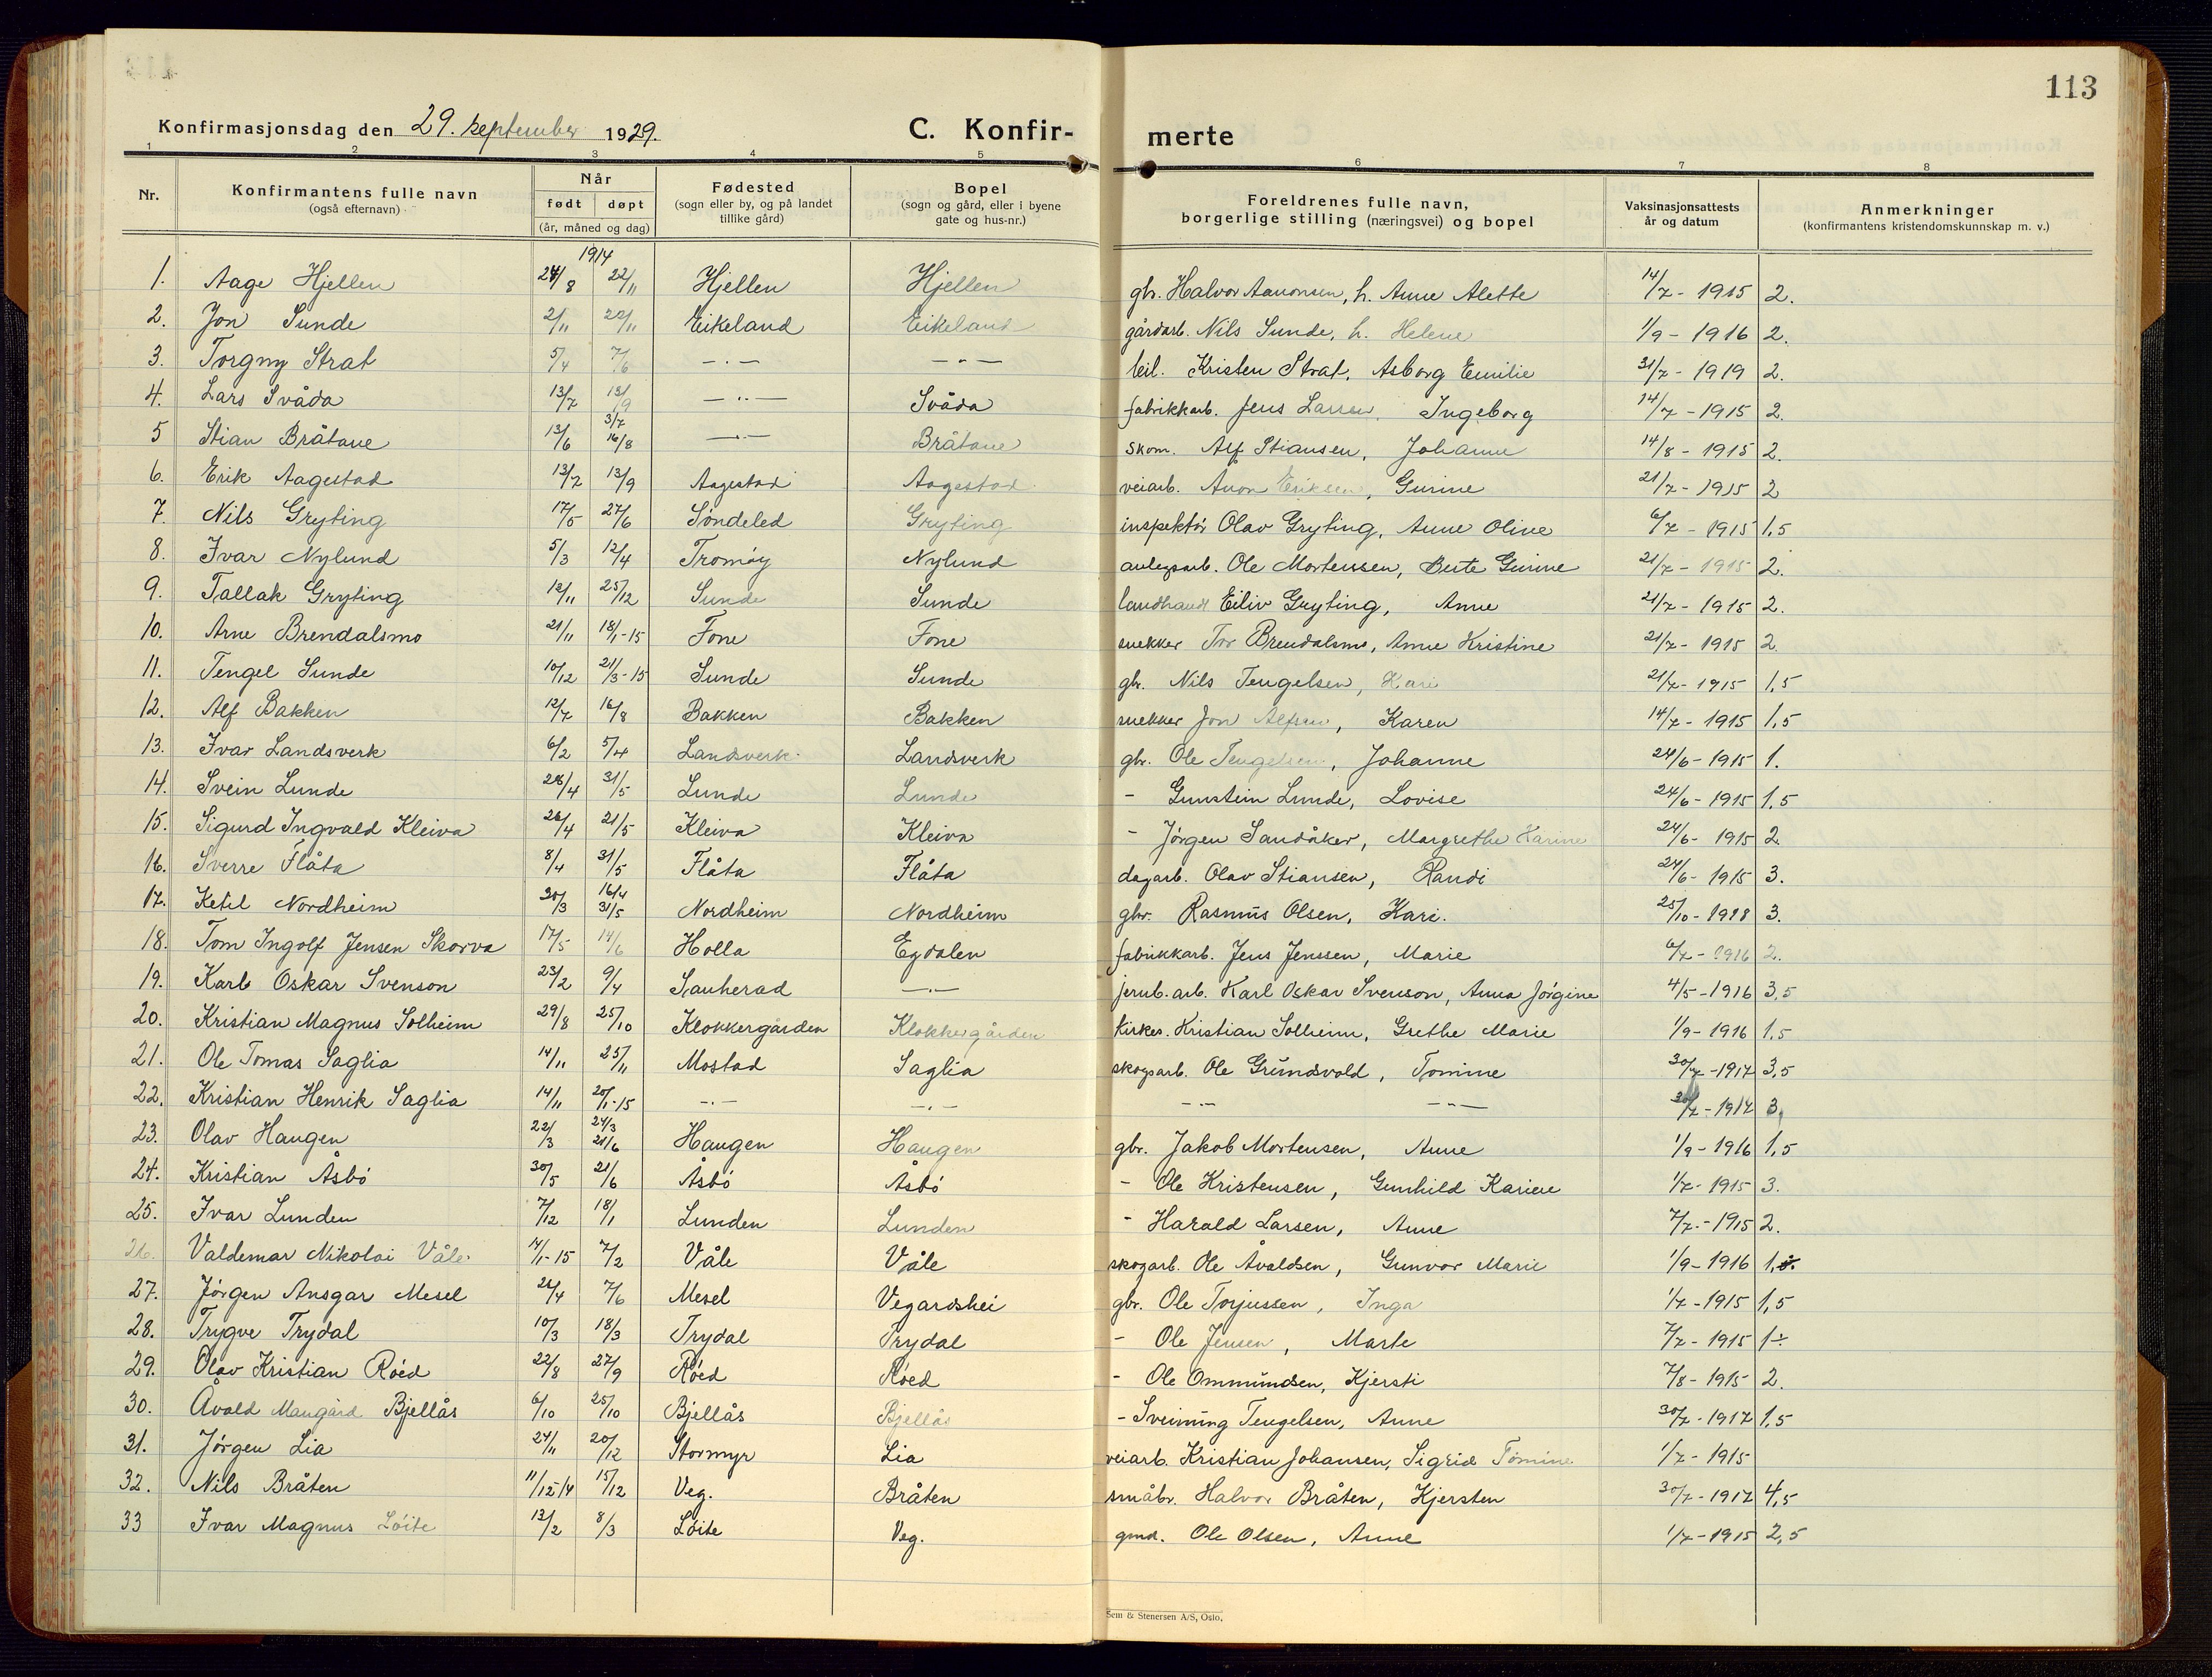 113
Konfirmasjonsdag den 29. september 1929. C. Konfir- merte
1 2 3 4 5 6 7 8
Nr. Konfirmantens fulle navn (også efternavn) Når født døpt (år, måned og dag) Fødested (sogn eller by, og på landet tillike gård) Bopel (sogn og gård, eller i byene gate og hus-nr.) Foreldrenes fulle navn, borgerlige stilling (næringsvei) og bopel Vaksinasjonsattests år og datum Anmerkninger (konfirmantens kristendomskunnskap m. v.)
1914
1. Aage Hjellen 24/8 22/11 Hjellen Hjellen gbr. Halvor Aanonsen, h. Anne Alette 14/7 - 1915 2.
2. Jon Sunde 2/11 22/11 Eikeland Eikeland gårdarb. Nils Sunde, h. Helene 1/9 - 1916 2.
3. Torgny Strat 5/4 7/6 — . — — " — teil. Kristen Strat, Asborg Emilie 31/7 - 1919 2.
4. Lars Svåda 13/7 13/9 — .. — Svåda fabrikkarb. Jens Larsen, Ingeborg 14/7 - 1915 2.
5 Stian Bråtane 13/6 3/7 16/8 — . — Bråtane skom. Alf Stiansen, Johanne 14/8 - 1915 2.
6. Erik Aagestad 13/7 13/9 Aagestad Aagestad veiarb. Anon Eriksen, Gurine 21/7 - 1915 2
7. Nils Gryting 17/5 27/6 Søndeled Gryting inspektør Olav Gryting, Anne Oline 6/7 - 1915 1,5
8. Ivar Nylund 5/3 12/4 Tromøy Nylund anlegsarb. Ole Mortensen, Berte Gurine 21/7 - 1915 2.
9. Tallak Gryting 12/11 25/12 Sunde Sunde landhandl Eiliv Gryting, Anne 21/7 - 1915 2.
10. Arne Brendalsmo 21/11 18/1-15 Fone Fone snekker Tor Brendalsmo, Anne Kristine 21/7 - 1915 2.
11. Tengel Sunde 10/12 21/3-15 Sunde Sunde gbr. Nils Tengelsen, Kari 21/7 - 1915 1,5
12. Alf Bakken 12/7 16/8 Bakken Bakken snekker Jon Alfsen, Karen 14/7 - 1915 1,5
13. Ivar Landsverk 6/2 5/4 Landsverk Landsverk gbr. Ole Tengelsen, Johanne 24/6 - 1915 1.
14. Svein Lunde 28/4 31/5 Lunde Lunde - Gunstein Lunde, Lovise 24/6 - 1915 1,5
15. Sigurd Ingvald Kleiva 26/4 21/5 Kleiva Kleiva - Jørgen Sandåker, Margrethe Karine 24/6 - 1915 2
16. Sverre Flåta 8/4 31/5 Flåta Flåta dagarb. Olav Stiansen, Randi 24/6 - 1915 3.
17. Ketil Nordheim 20/3 16/4 31/5 Nordheim Nordheim gbr. Rasmus Olsen, Kari. 25/10 - 1918 3.
18. Tom Ingolf Jensen Skorva 17/5 14/6 Holla Egdalen fabrikkarb. Jens Jenssen, Marie 6/7 - 1916 2.
19. Karl Oskar Svenson 23/2 9/4 Sauherad — . — jernb. arb. Karl Oskar Svenson, Anna Jørgine 4/5 - 1916 3,5
20. Kristian Magnus Solheim 29/8 25/10 Klokkergården Klokkergården kirkes. Kristian Solheim, Grethe Marie 1/9 - 1916 1,5
21. Ole Tomas Saglia 14/11 25/11 Mostad Saglia skogsarb. Ole Grundsvold, Tomine 30/7 - 1917 3,5
22. Kristian Henrik Saglia 14/11 20/1-15 — . — — . — — " — — " — 30/7 - 1917 3,
23. Olav Haugen 22/3 24/3 21/6 Haugen Haugen gbr. Jakob Mortensen, Anne 1/9 - 1916 1,5
24. Kristian Åsbø 30/5 21/6 Åsbø Åsbø - Ole Kristensen, Gunhild Karine 1/7 - 1915 3.
25. Ivar Lunden 7/12 18/1 Lunden Lunden - Harald Larsen, Anne 7/7. - 1915 2.
26. Valdemar Nikolai Våle. 14/1-15 7/2 Våle Våle skogarb. Ole Åvaldsen, Gunvor Marie 1/9 - 1916
27. Jørgen Ansgar Mesel 26/4 7/6 Mesel Vegardshei gbr. Ole Torjussen, Inga 1/7 - 1915 1,5
28. Trygve Trydal 10/3 18/3 Trydal Trydal - Ole Jensen, Marte 7/7 - 1915 1÷
29. Olav Kristian Røed 22/8 27/9 Røed Røed - Ole Ommundsen, Kjersti 7/8 - 1915 2.
30. Åvald Maugård Bjellås 6/10 25/10 Bjellås Bjellås - Sveinung Tengelsen, Anne 30/7 - 1917 1,5
31. Jørgen Lia 24/11 20/12 Stormyr Lia veiarb. Kristian Johansen, Sigrid Tomine 1/7 - 1915
32. Nils Bråten 11/12-14 15/12 Veg. Bråten småbr. Halvor Bråten, Kjersten 30/7 - 1917 4,5
33 Ivar Magnus Løite 13/2 8/3 Løite Veg. gmd. Ole Olsen, Anne 1/7 - 1915 2,5
Sem & Stenersen A/S, Oslo.